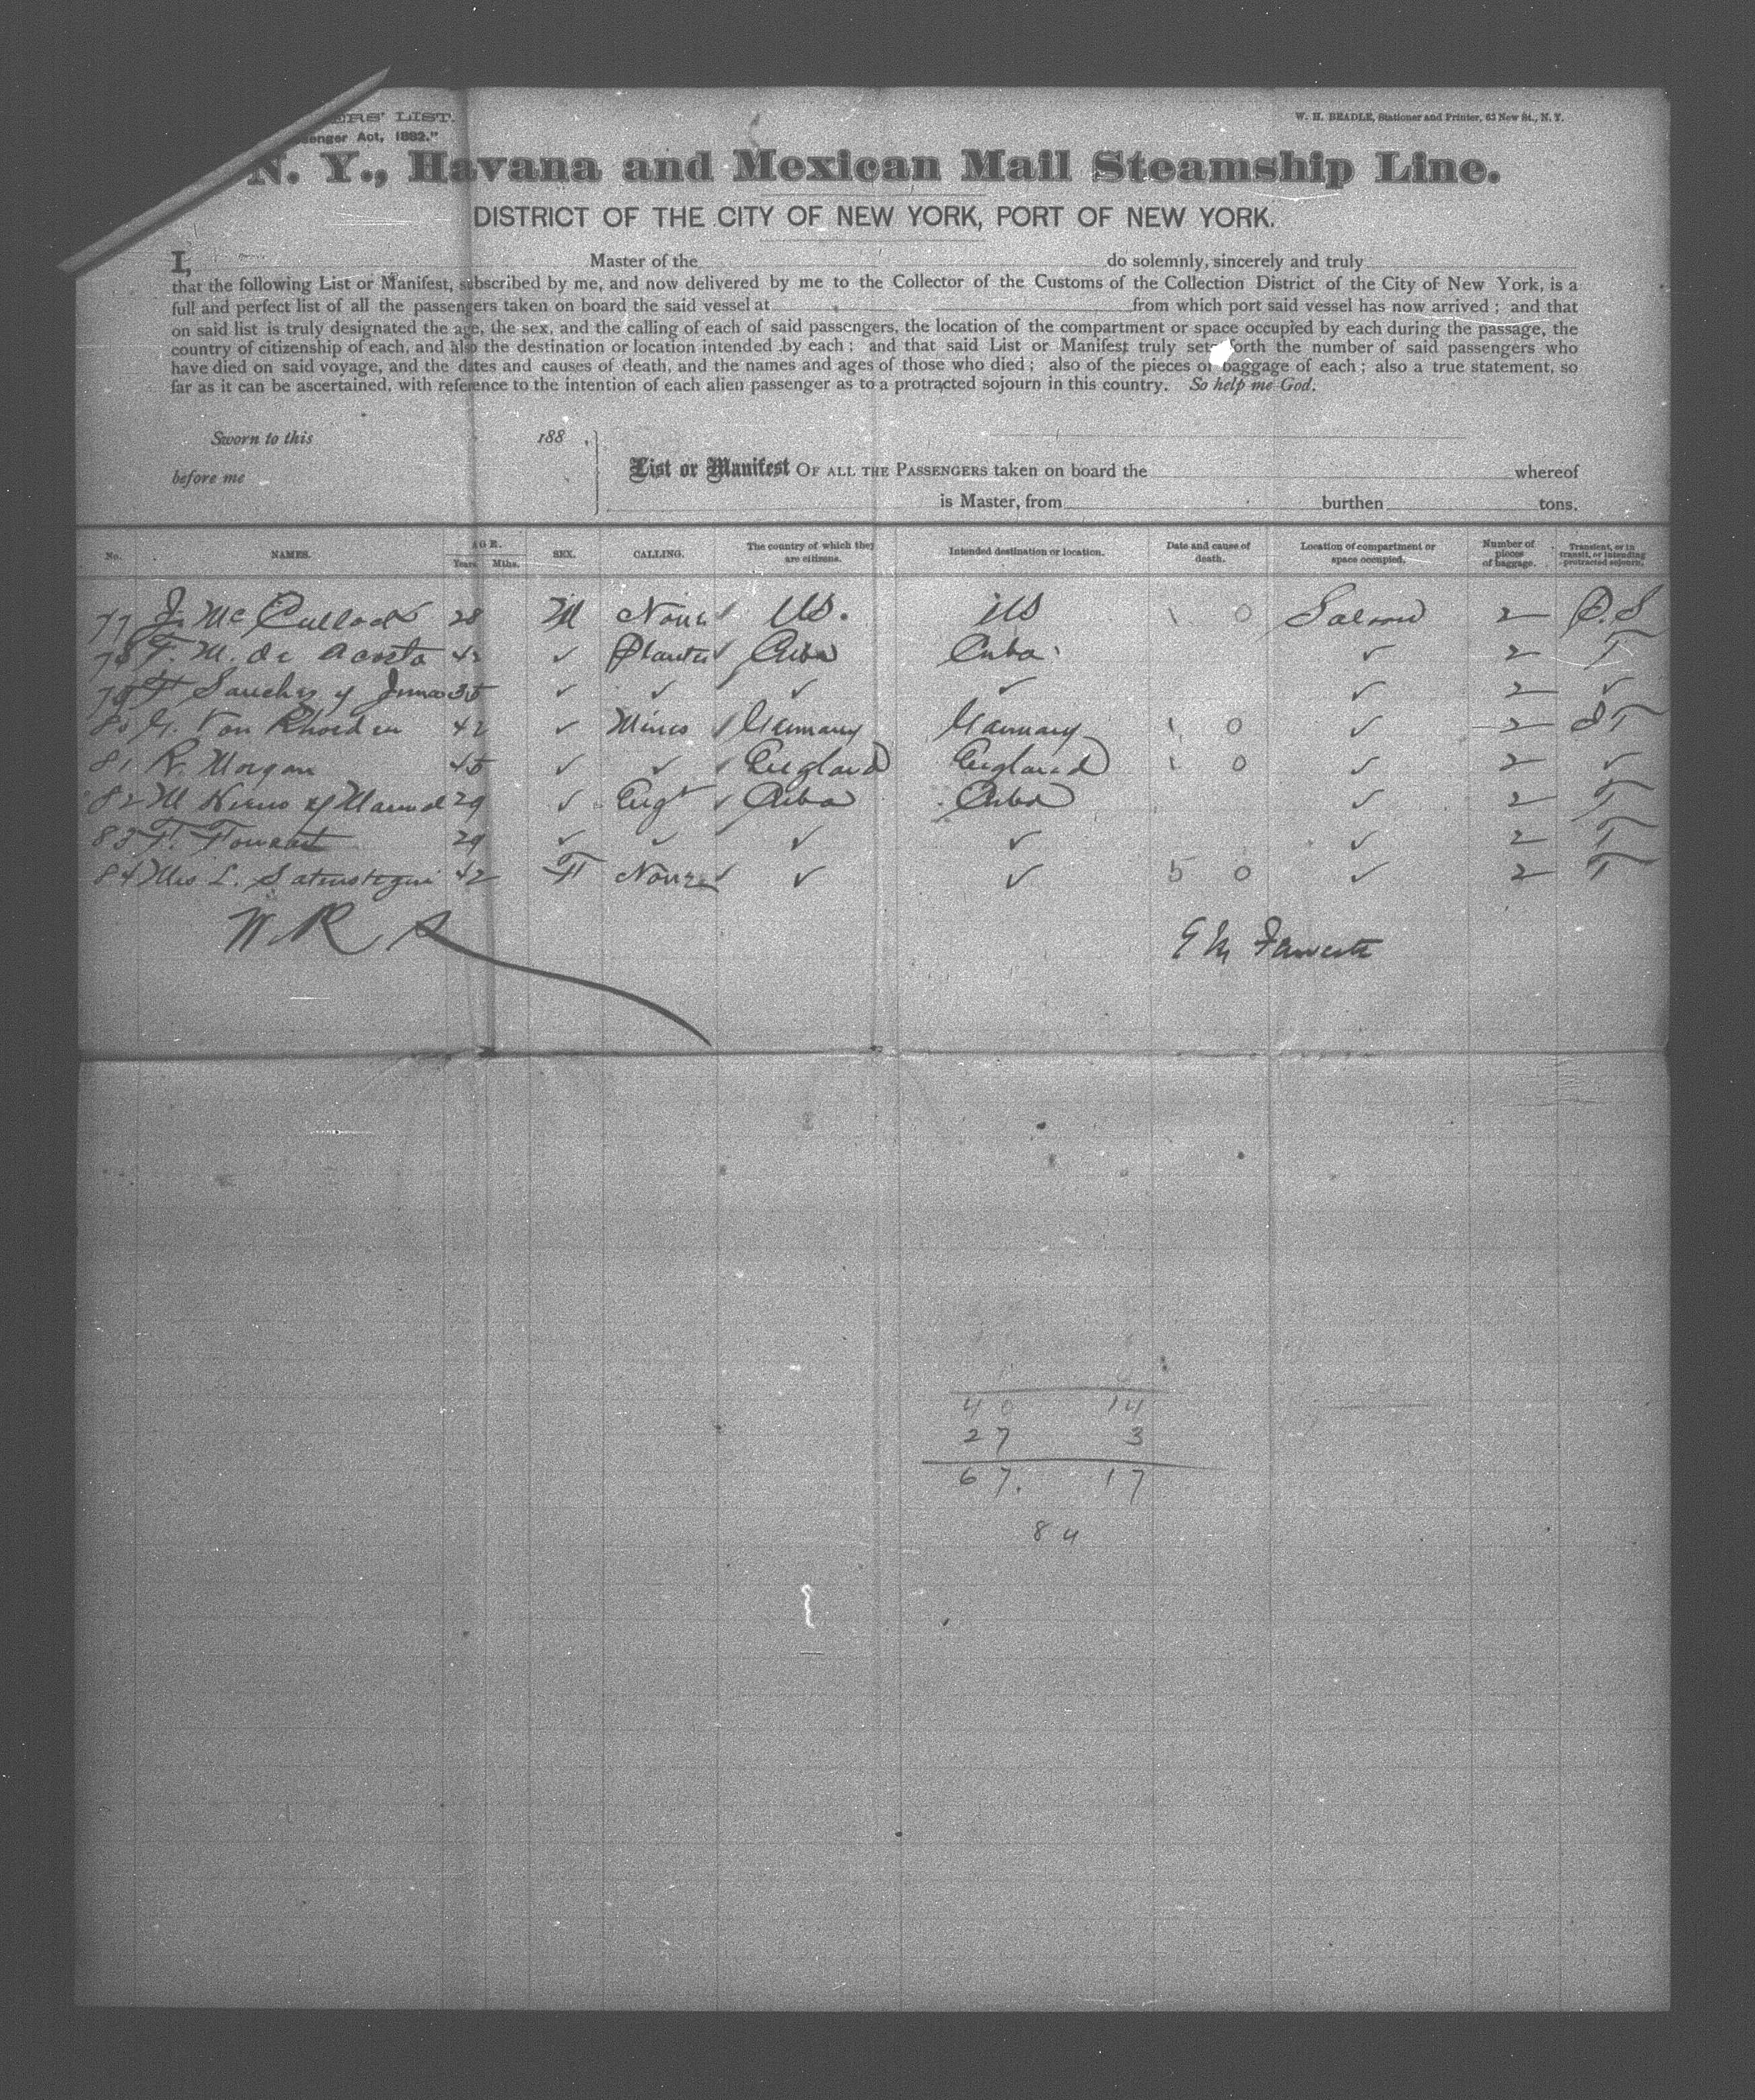 ERS' LIST.
enger Act, 1882."
W. H. BEADLE, Stationer and Printer, 63 New St., N. Y.
N. Y., Havana and Mexican Mail Steamship Line.
DISTRICT OF THE CITY OF NEW YORK, PORT OF NEW YORK.
I, Master of the do solemnly, sincerely and truly
that the following List or Manifest, subscribed by me, and now delivered by me to the Collector of the Customs of the Collection District of the City of New York, is a
full and perfect list of all the passengers taken on board the said vessel at from which port said vessel has now arrived; and that
on said list is truly designated the age, the sex, and the calling of each of said passengers, the location of the compartment or space occupied by each during the passage, the
country of citizenship of each, and also the destination or location intended by each; and that said List or Manifest truly sets forth the number of said passengers who
have died on said voyage, and the dates and causes of death, and the names and ages of those who died; also of the pieces of baggage of each; also a true statement, so
far as it can be ascertained, with reference to the intention of each alien passenger as to a protracted sojourn in this country. So help me God.
Sworn to this 188 ,
before me
List or Manifest OF ALL THE PASSENGERS taken on board the whereof
is Master, from burthen tons.
No. NAMES. AGE. Years Mths. SEX. CALLING. The country of which they are citizens. Intended destination or location. Date and cause of death. Location of compartment or space occupied. Number of pieces of baggage. Transient, or in transit, or intending protracted sojourn.
77 J. McCulloch 28 M None ✓ US. US 1 0 Saloon 2 P.S
78 F. M. de Acosta 42 ✓ Planter ✓ Cuba Cuba ✓ 2 T
79 F Sanchez y 35 ✓ ✓ ✓ ✓ ✓ 2 ✓
80 G. Von Rhoeden 42 ✓ Miner ✓ Germany Germany 1 0 ✓ 2 T
81 R. Morgan 45 ✓ ✓ ✓ England England 1 0 ✓ 2 ✓
82 M y 29 ✓ Engr ✓ Cuba Cuba ✓ 2 T
83 F. 29 ✓ ✓ ✓ ✓ ✓ 2 T
84 Mrs L. Satrustegui 42 F None ✓ ✓ ✓ 5 0 ✓ 2 T
E M Fawcett
40 14
27 3
67. 17
84